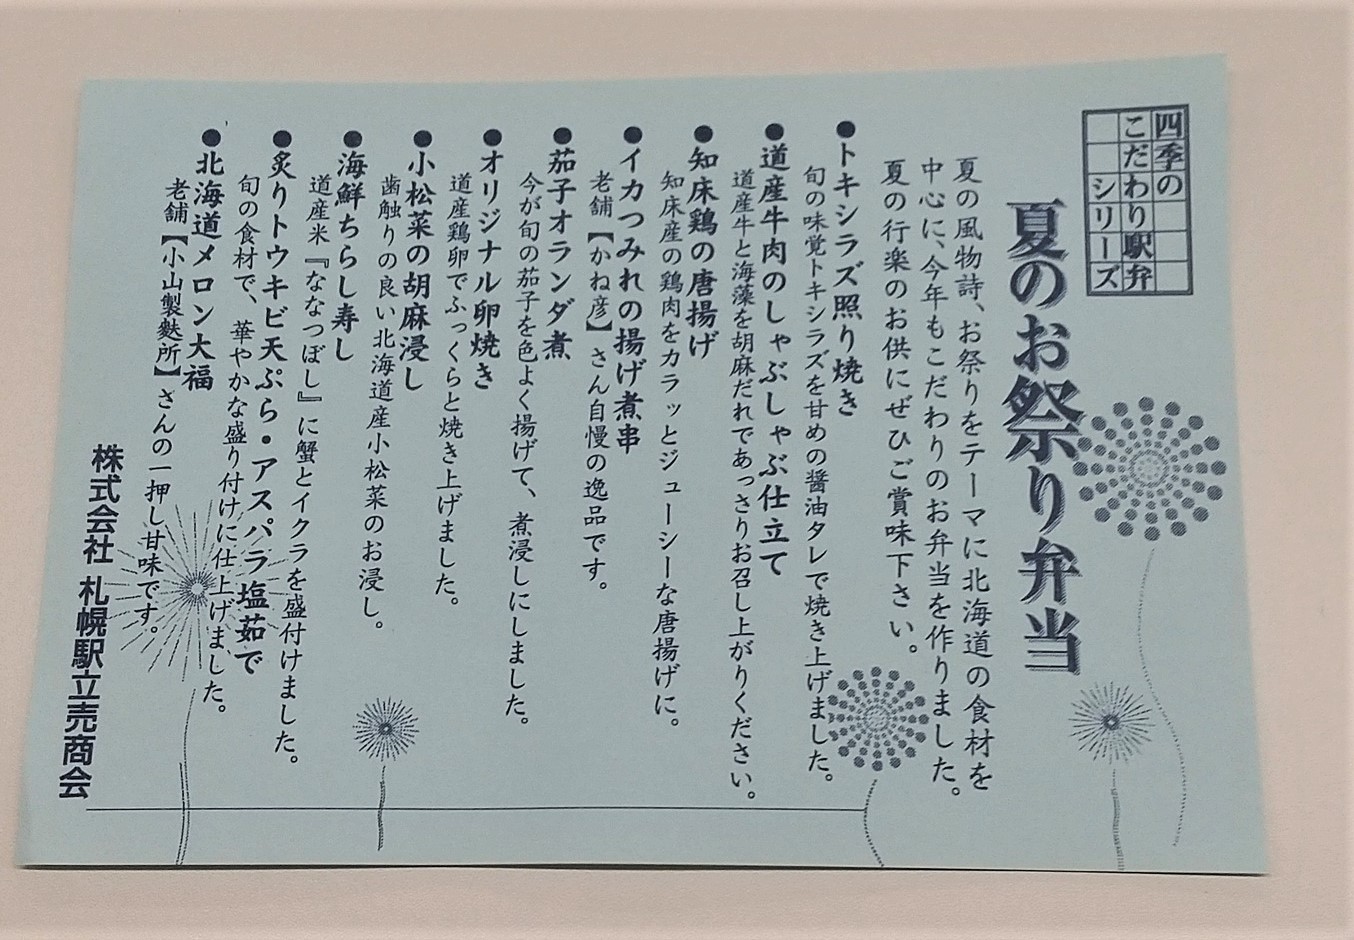 四季の
こだわり駅弁
シリーズ
夏のお祭り弁当
夏の風物詩、お祭りをテーマに北海道の食材を
中心に、今年もこだわりのお弁当を作りました。
夏の行楽のお供にぜひご賞味下さい。
●トキシラズ照り焼き
旬の味覚トキシラズを甘めの醤油タレで焼き上げました。
●道産牛肉のしゃぶしゃぶ仕立て
道産牛と海藻を胡麻だれであっさりお召し上がりください。
●知床鶏の唐揚げ
知床産の鶏肉をカラッとジューシーな唐揚げに。
●イカつみれの揚げ煮串
老舗【かね彦】さん自慢の逸品です。
●茄子オランダ煮
今が旬の茄子を色よく揚げて、煮浸しにしました。
●オリジナル卵焼き
道産鶏卵でふっくらと焼き上げました。
●小松菜の胡麻浸し
歯触りの良い北海道産小松菜のお浸し。
●海鮮ちらし寿し
道産米『ななつぼし』に蟹とイクラを盛付けました。
●炙りトウキビ天ぷら・アスパラ塩茹で
旬の食材で、華やかな盛り付けに仕上げました。
●北海道メロン大福
老舗【小山製麩所】さんの一押し甘味です。
株式会社 札幌駅立売商会